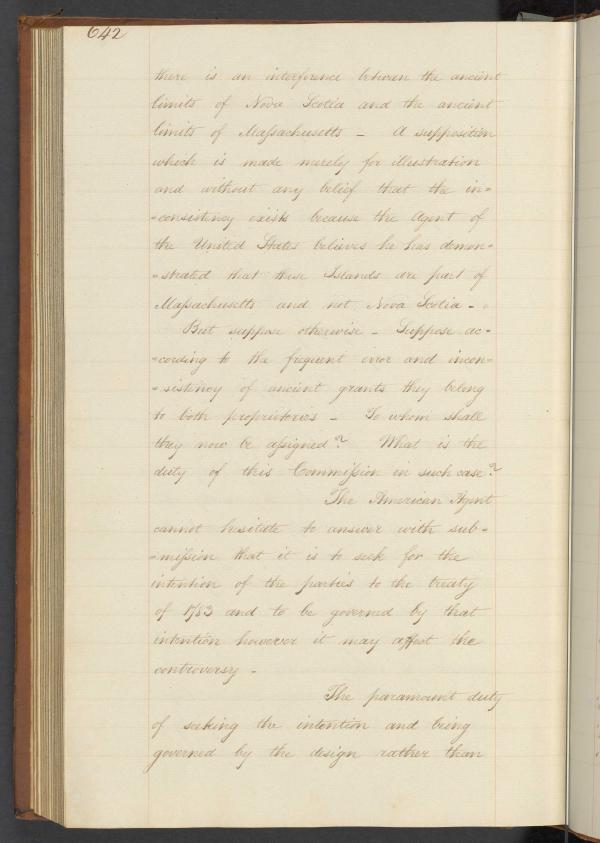 642
there is an interference between the ancient
limits of Nova Scotia and the ancient
limits of Maſsachusetts – A supposition
which is made merely for illustration
and without any belief that the in=
=consistency exists because the Agent of
the United States believes he has demon=
=strated that these Islands are part of
Maſsachusetts and not Nova Scotia –
But suppose otherwise – Suppose ac=
=cording to the frequent error and incon=
=sistency of ancient grants they belong
to both proprietories – To whom shall
they now be aſsigned? What is the
duty of this Commiſsion in such case?
The American Agent
cannot hesitate to answer with sub=
=miſsion that it is to seek for the
intention of the parties to the treaty
of 1783 and to be governed by that
intention however it may affect the
controversy –
The paramount duty
of seeking the intention and being
governed by the design rather than